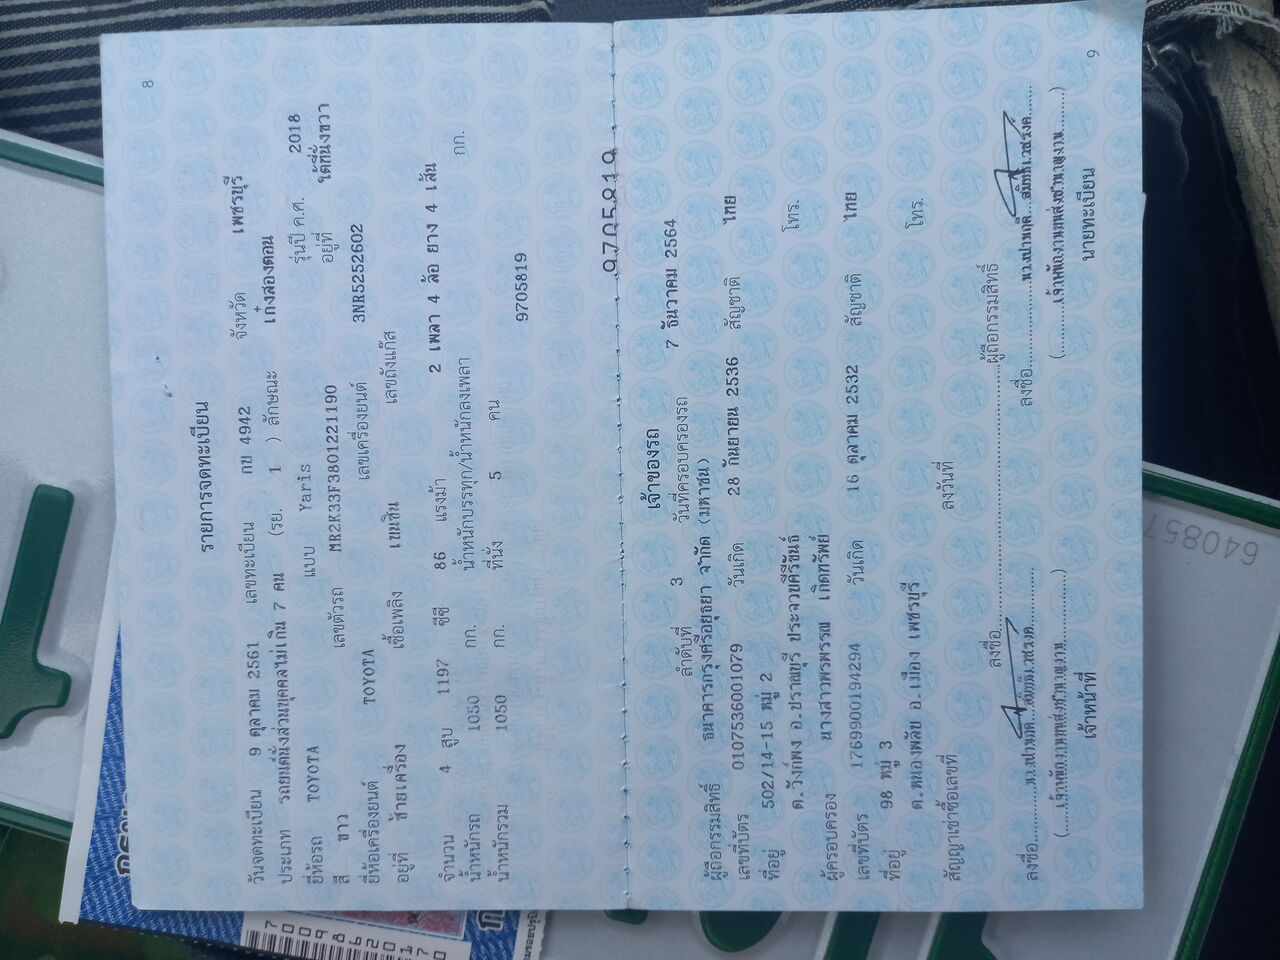 8
รายการจดทะเบียน
วันจดทะเบียน 9 ตุลาคม 2561 เลขทะเบียน กข 4942 จังหวัด เพชรบุรี
ประเภท รถยนต์นั่งส่วนบุคคลไม่เกิน 7 คน (รย. 1 ) ลักษณะ เก๋งสองตอน
ยี่ห้อรถ TOYOTA แบบ Yaris รุ่นปี ค.ศ. 2018
สี ขาว เลขตัวรถ MR2K33F3801221190 อยู่ที่ ใต้ที่นั่งขวา
ยี่ห้อเครื่องยนต์ TOYOTA เลขเครื่องยนต์ 3NR5252602
อยู่ที่ ซ้ายเครื่อง เชื้อเพลิง เบนซิน เลขถังแก๊ส
จำนวน 4 สูบ 1197 ซีซี 86 แรงม้า 2 เพลา 4 ล้อ ยาง 4 เส้น
น้ำหนักรถ 1050 กก. น้ำหนักบรรทุก/น้ำหนักลงเพลา กก.
น้ำหนักรวม 1050 กก. ที่นั่ง 5 คน 9705819
9705819
เจ้าของรถ
ลำดับที่ 3 วันที่ครอบครองรถ 7 ธันวาคม 2564
ผู้ถือกรรมสิทธิ์ ธนาคารกรุงศรีอยุธยา จำกัด (มหาชน)
เลขที่บัตร 0107536001079 วันเกิด 28 กันยายน 2536 สัญชาติ ไทย
ที่อยู่ 502/14-15 หมู่ 2
ต.วังก์พง อ.ปราณบุรี ประจวบคีรีขันธ์ โทร.
ผู้ครอบครอง นางสาวพรพรรณ เกิดทรัพย์
เลขที่บัตร 1769900194294 วันเกิด 16 ตุลาคม 2532 สัญชาติ ไทย
ที่อยู่ 98 หมู่ 3
ต.หนองพลับ อ.เมือง เพชรบุรี โทร.
สัญญาเช่าซื้อเลขที่ ลงวันที่
ลงชื่อ ผู้ถือกรรมสิทธิ์
ลงชื่อ ลงชื่อ
เจ้าหน้าที่ นายทะเบียน
9
640857